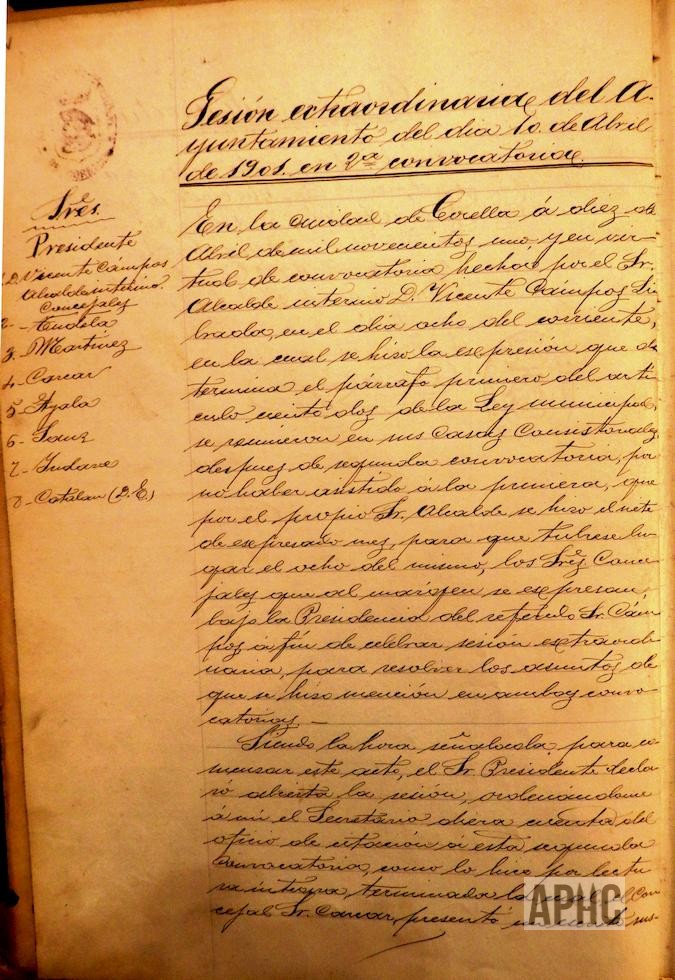 Sesión extraordinaria del A-
yuntamiento del dia 10. de Abril
de 1901. en 2ª convocatoria.
Sres.
Presidente
D. Vicente Cámpos
Alcalde interino.
Concejales
2- Tudela
3- Martinez
4- Carcar
5- Ayala
6- Sanz
7- Indave
8- Catalan (D. E.)
En la ciudad de Corella á diez de
Abril de mil novecientos uno, y en vir-
tud de convocatoria hecha por el Sr.
Alcalde interino D. Vicente Cámpos Li-
brada, en el dia ocho del corriente,
en la cual se hizo la expresión que de
termina el párrafo primero del arti
culo ciento dos de la Ley municipal,
se reunieron en sus Casas Consistoriales
despues de segunda convocatoria, por
no haber asistido á la primera, que
por el propio Sr. Alcalde se hizo el siete
de expresado mes, para que tubiese lu-
gar el ocho del mismo, los Sres Conce-
jales que al margen se expresan,
bajo la Presidencia del referido Sr. Cám-
pos á fin de celebrar sesión extraordi-
naria, para resolver los asuntos de
que se hizo mención en ambas convo-
catorias.-
Siendo la hora señalada para co-
menzar este acto, el Sr. Presidente decla
ró abierta la sesión, ordenándome
á mi el Secretario diera cuenta del
oficio de citación á esta segunda
convocatoria, como lo hice por lectu
ra integra, terminada la cual el Con
cejal Sr. Carcar, presentó un escrito sus-
APHC